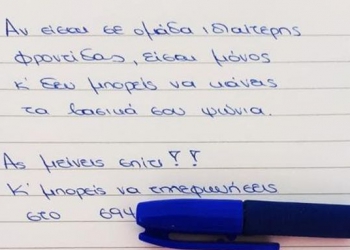 Αν είσαι σε ομάδα ιδιαίτερης
φροντίδας, είσαι μόνος
κ' δεν μπορείς να κάνεις
τα βασικά σου ψώνια.
Ας μείνεις σπίτι!!
Κ' μπορείς να τηλεφωνήσεις
στο 694